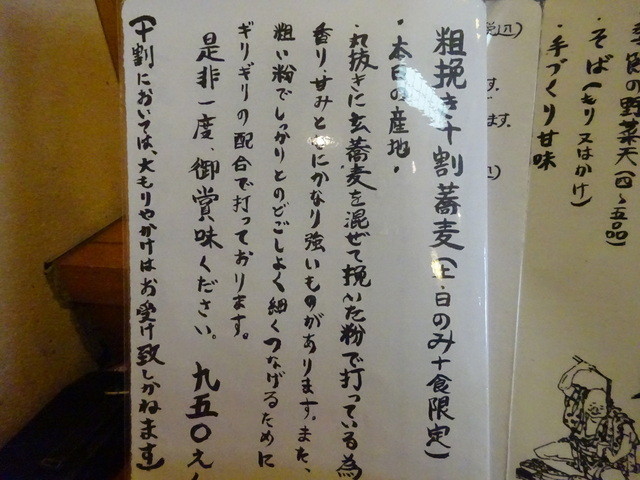 季節の野菜天(四〜五品)
・そば(もり又はかけ)
・手づくり甘味
粗挽き十割蕎麦(土・日のみ十食限定)
・本日の産地・
・丸抜きに玄蕎麦を混ぜて挽いた粉で打っている為
香り・甘みともにかなり強いものがあります。また、
粗い粉でしっかりとのどごしよく細くつなげるために
ギリギリの配合で打っております。
是非一度、御賞味ください。 九五〇えん
(十割においては、大もりやかけはお受け致しかねます)